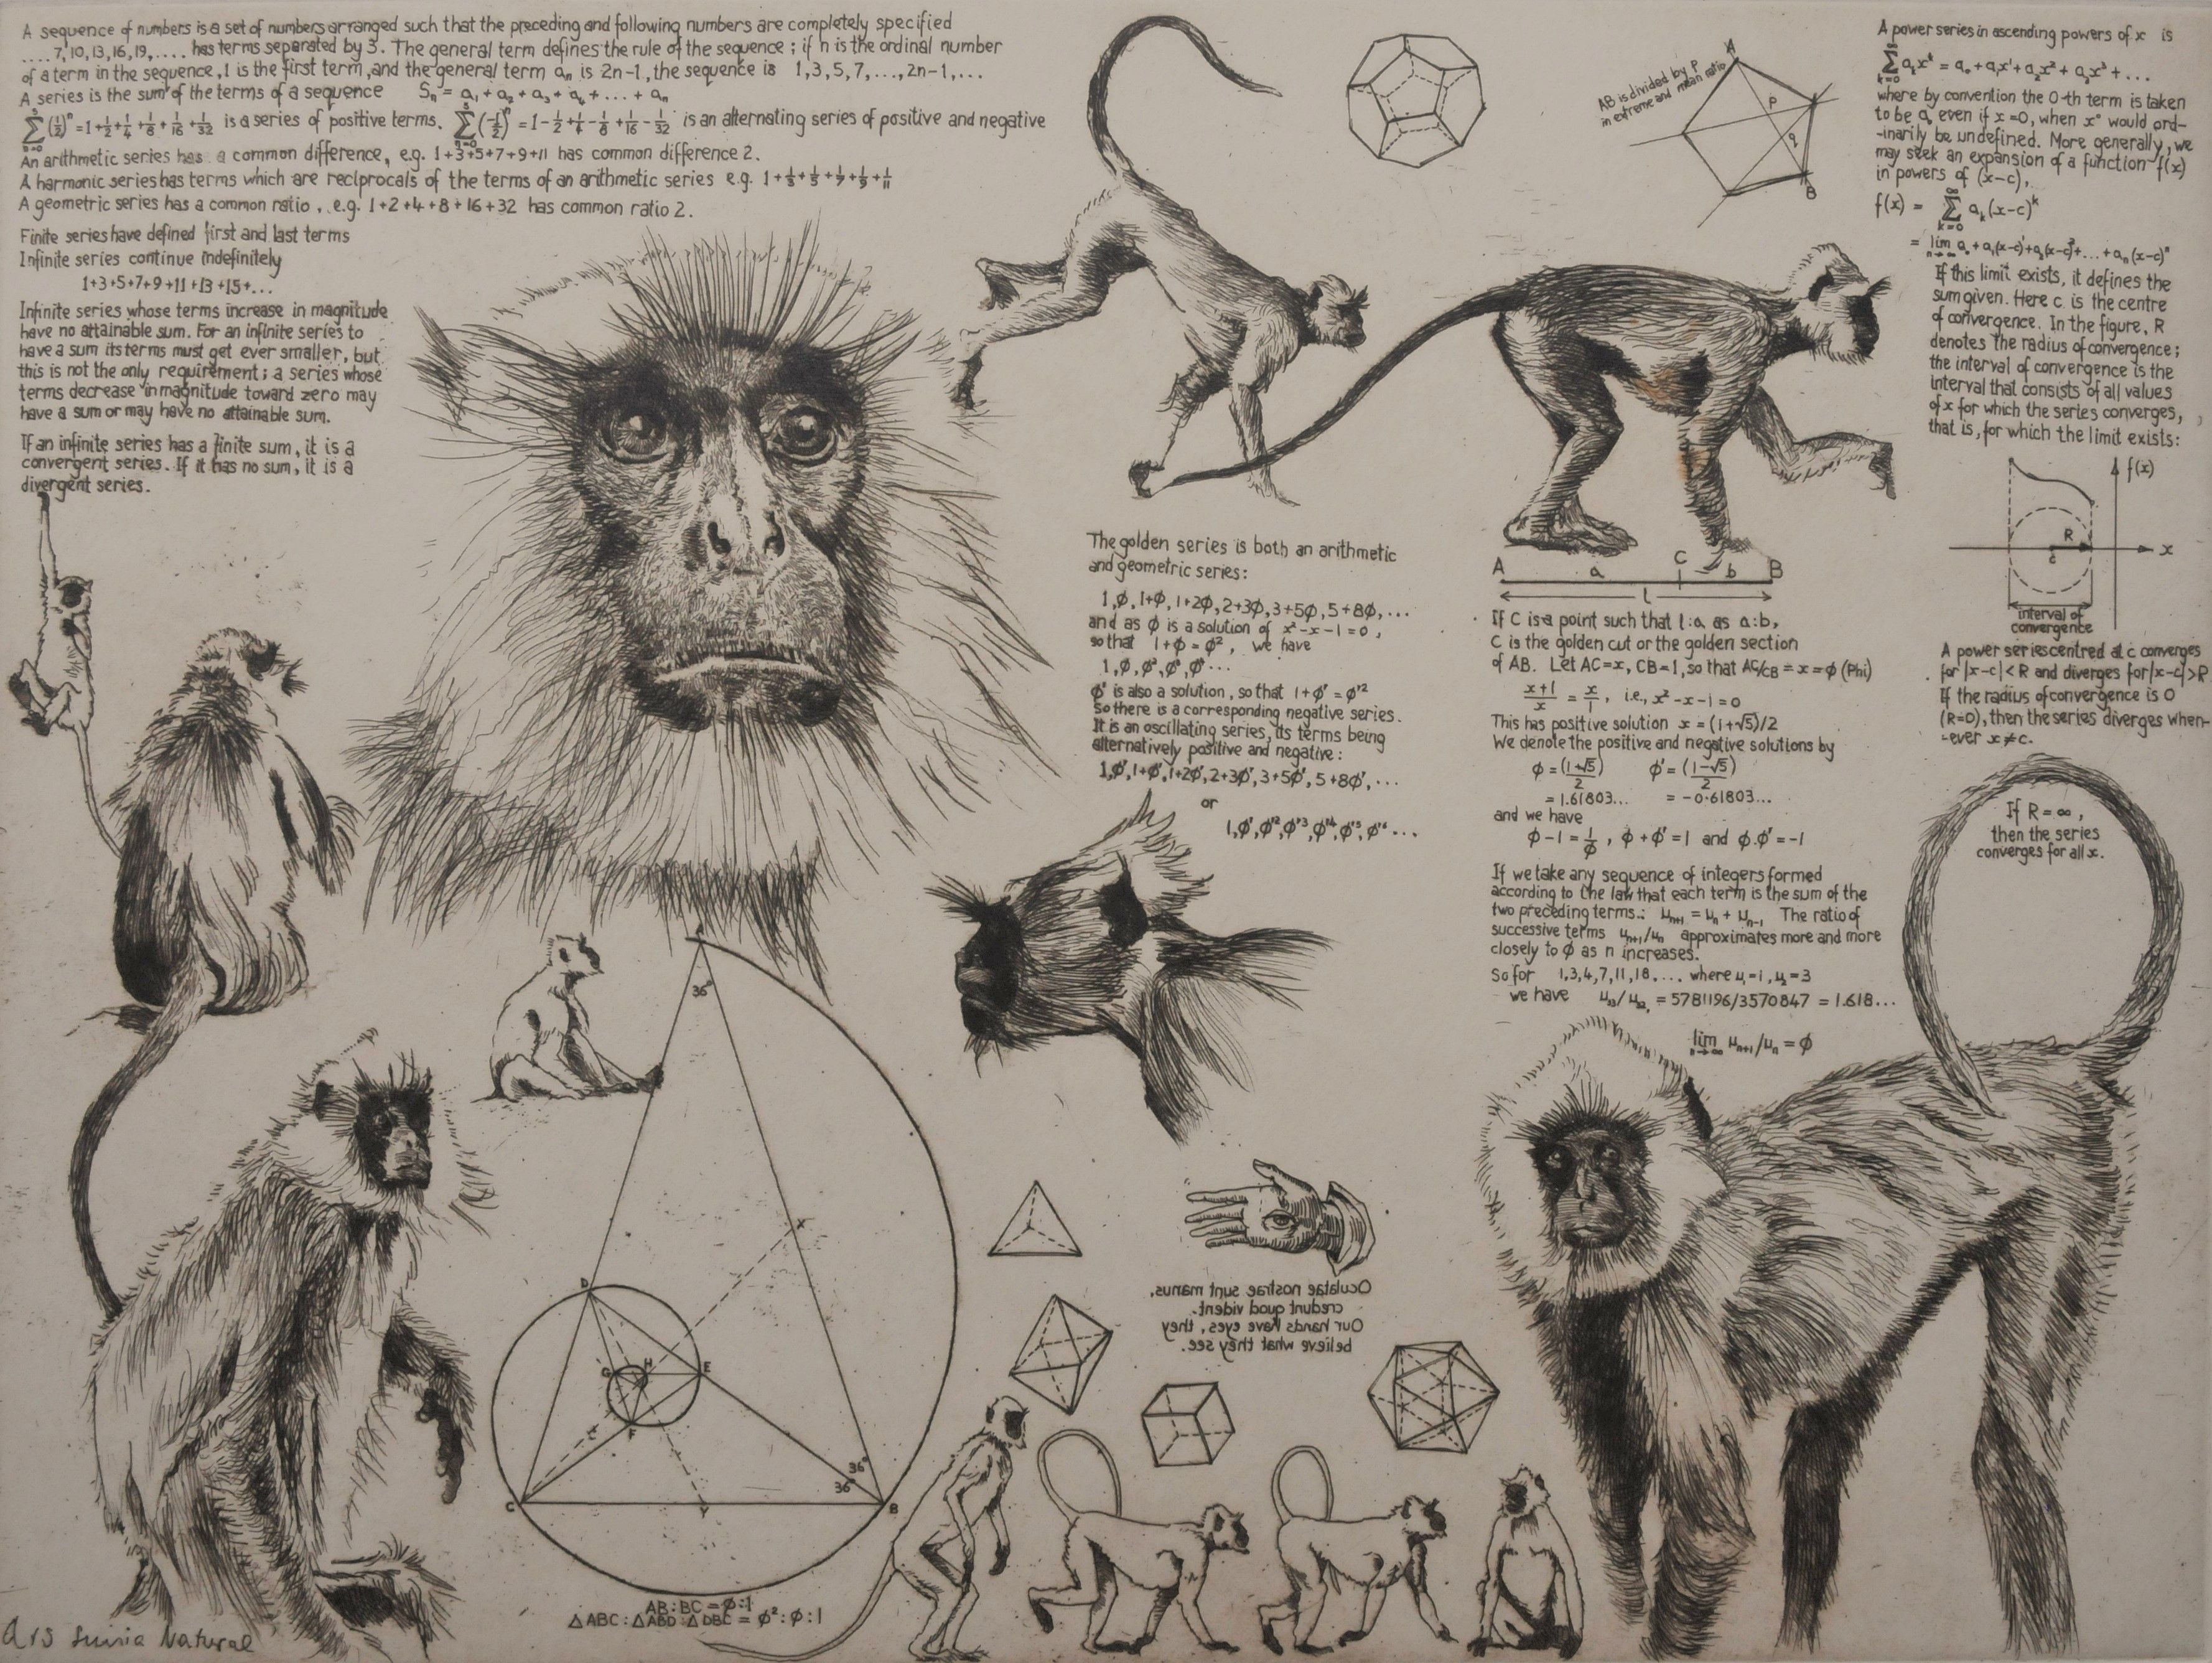 A sequence of numbers is a set of numbers arranged such that the preceding and following numbers are completely specified
....7,10,13,16,19,.... has terms separated by 3. The general term defines the rule of the sequence; if n is the ordinal number
of a term in the sequence, 1 is the first term, and the general term aₙ is 2n-1, the sequence is 1,3,5,7,...,2n-1,...
A series is the sum of the terms of a sequence Sₙ = a₁ + a₂ + a₃ + a₄ + ... + aₙ
∑ₙ₌₀⁵ (1/2)ⁿ = 1+1/2+1/4+1/8+1/16+1/32 is a series of positive terms. ∑ₙ₌₀⁵ (-1/2)ⁿ = 1-1/2+1/4-1/8+1/16-1/32 is an alternating series of positive and negative
An arithmetic series has a common difference, e.g. 1+3+5+7+9+11 has common difference 2.
A harmonic series has terms which are reciprocals of the terms of an arithmetic series e.g. 1+1/3+1/5+1/7+1/9+1/11
A geometric series has a common ratio, e.g. 1+2+4+8+16+32 has common ratio 2.
Finite series have defined first and last terms
Infinite series continue indefinitely
1+3+5+7+9+11+13+15+...
Infinite series whose terms increase in magnitude
have no attainable sum. For an infinite series to
have a sum its terms must get ever smaller, but
this is not the only requirement; a series whose
terms decrease in magnitude toward zero may
have a sum or may have no attainable sum.
If an infinite series has a finite sum, it is a
convergent series. If it has no sum, it is a
divergent series.
AB is divided by P
in extreme and mean ratio
A
P
q
B
A power series in ascending powers of x is
∑ₖ₌₀^∞ aₖxᵏ = a₀ + a₁x¹ + a₂x² + a₃x³ + ...
where by convention the 0-th term is taken
to be a₀ even if x=0, when x⁰ would ord-
-inarily be undefined. More generally, we
may seek an expansion of a function f(x)
in powers of (x-c),
f(x) = ∑ₖ₌₀^∞ aₖ(x-c)ᵏ
= lim n→∞ a₀ + a₁(x-c)¹ + a₂(x-c)² + ... + aₙ(x-c)ⁿ
If this limit exists, it defines the
sum given. Here c is the centre
of convergence. In the figure, R
denotes the radius of convergence;
the interval of convergence is the
interval that consists of all values
of x for which the series converges,
that is, for which the limit exists:
f(x)
R
c
x
interval of
convergence
A power series centred at c converges
for |x-c|<R and diverges for |x-c|>R.
If the radius of convergence is 0
(R=0), then the series diverges when-
-ever x≠c.
If R = ∞,
then the series
converges for all x.
The golden series is both an arithmetic
and geometric series:
1,φ,1+φ,1+2φ,2+3φ,3+5φ,5+8φ,...
and as φ is a solution of x²-x-1=0,
so that 1+φ=φ², we have
1,φ,φ²,φ³,φ⁴...
φ' is also a solution, so that 1+φ' = φ'²
So there is a corresponding negative series.
It is an oscillating series, its terms being
alternatively positive and negative:
1,φ',1+φ',1+2φ',2+3φ',3+5φ',5+8φ',...
or
1,φ',φ'²,φ'³,φ'⁴,φ'⁵,φ'⁶...
A a C b B
l
If C is a point such that l:a as a:b,
C is the golden cut or the golden section
of AB. Let AC=x, CB=1, so that AC/CB = x = φ (Phi)
(x+1)/x = x/1, i.e., x²-x-1=0
This has positive solution x = (1+√5)/2
We denote the positive and negative solutions by
φ = (1+√5)/2 φ' = (1-√5)/2
= 1.61803... = -0.61803...
and we have
φ-1 = 1/φ, φ+φ'=1 and φ.φ'=-1
If we take any sequence of integers formed
according to the law that each term is the sum of the
two preceding terms.: μₙ₊₁ = μₙ + μₙ₋₁ The ratio of
successive terms μₙ₊₁/μₙ approximates more and more
closely to φ as n increases.
So for 1,3,4,7,11,18,... where μ₁=1, μ₂=3
we have μ₃₃/μ₃₂ = 5781196/3570847 = 1.618...
lim n→∞ μₙ₊₁/μₙ = φ
A
36°
X
D
G H E
F
36°
36°
C Y B
AB:BC = φ:1
△ABC:△ABD:△DBC = φ²:φ:1
Oculatae nostrae sunt manus,
credunt quod vident.
Our hands have eyes, they
believe what they see.
Ars Simia Natural